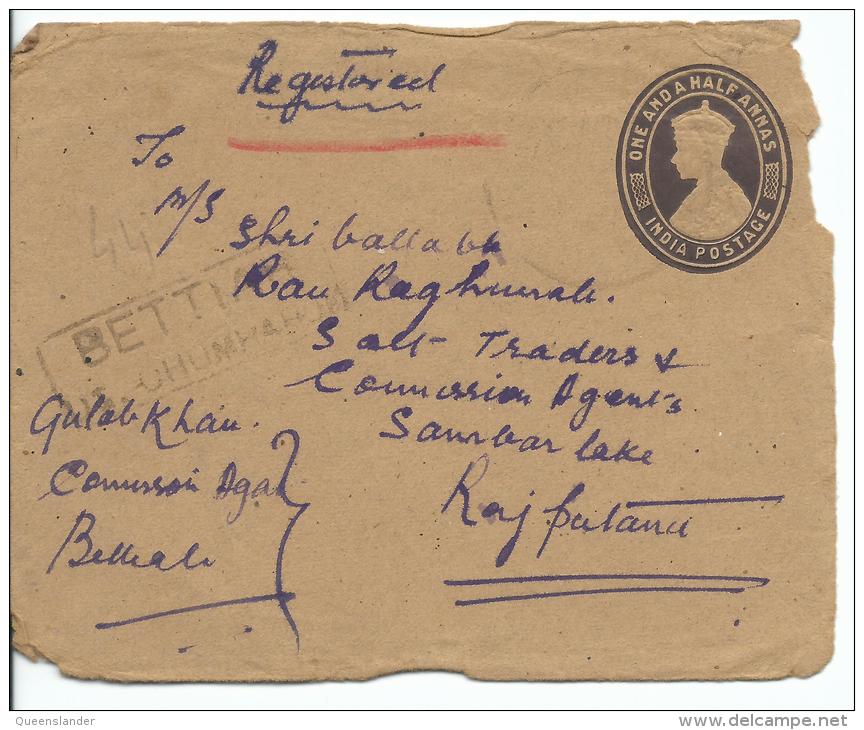 Registered
ONE AND A HALF ANNAS
INDIA POSTAGE
To
M/S
44
Shri ballabh
Ram Raghunath.
Salt Traders &
Commission Agents
Sambar lake
Rajputana
BETTIAH
CHUMPARUN
Gulab Khan.
Comission Agent
Bettiah
Queenslander
www.delcampe.net